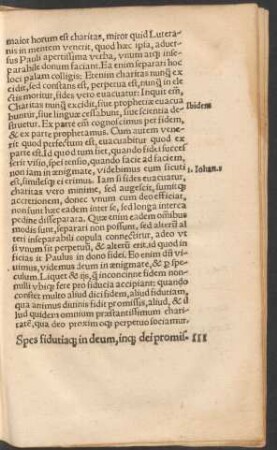 maior horum est charitas, miror quid Lutera-
nis in mentem venerit, quod hæc ipsa, aduer-
sus Pauli apertissima verba, vnum atq; inse-
parabile donum faciant. Ea enim separari hoc
loci palam colligis: Etenim charitas nunq̃ ex
cidit, sed constans est, perpetua est, nunq̃ in ele
ctis moritur, fides vero euacuatur: Inquit em̃,
Charitas nunq̃ excidit, siue prophetiæ euacua
buntur, siue linguæ cessabunt, siue scientia de-
struetur. Ex parte em̃ cognoscimus per fidem,
& ex parte prophetamus. Cum autem vene-
rit quod perfectum est, euacuabitur quod ex
parte est. Id quod tum fiet, quando fidei succes
serit visio, spei tensio, quando facie ad faciem,
non iam in ænigmate, videbimus eum sicuti
est, similesq; ei erimus. Iam si fides euacuatur,
charitas vero minime, sed augescit, sumitq;
accretionem, donec vnum cum deo efficiat,
non sunt hæc eadem inter se, sed longa interca
pedine disseparata. Quæ enim eadem omnibus
modis sunt, separari non possunt, sed alterū al
teri inseparabili copula connectitur, adeo vt
si vnum sit perpetuū, & alterū erit, id quod in
ficias it Paulus in dono fidei. Eo enim dū vi-
uimus, videmus deum in ænigmate, & p spe-
culum. Liquet & ijs, q̃ inconcinne fidem non-
nulli vbiq; fere pro fiducia accipiant: quando
constet multo aliud dici fidem, aliud fidutiam,
qua animus diuinis fidit promissis, aliud, & il
lud quidem omnium præstantissimum chari-
tatē, qua deo proximoq; perpetuo sociamur.
Spes fidutiaq; in deum, inq; dei promis-
Ibidem
1. Iohan. 3
III